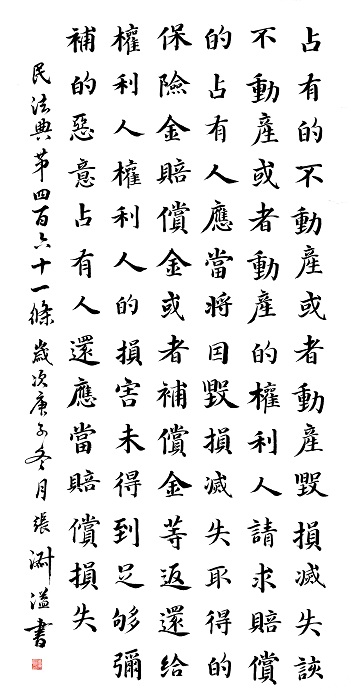 占有的不動產或者動產毀損滅失該
不動產或者動產的權利人請求賠償
的占有人應當將囙毀損滅失取得的
保險金賠償金或者補償金等返還給
權利人權利人的損害未得到足够彌
補的惡意占有人還應當賠償損失
民法典第四百六十一條歲次庚子冬月張溢書